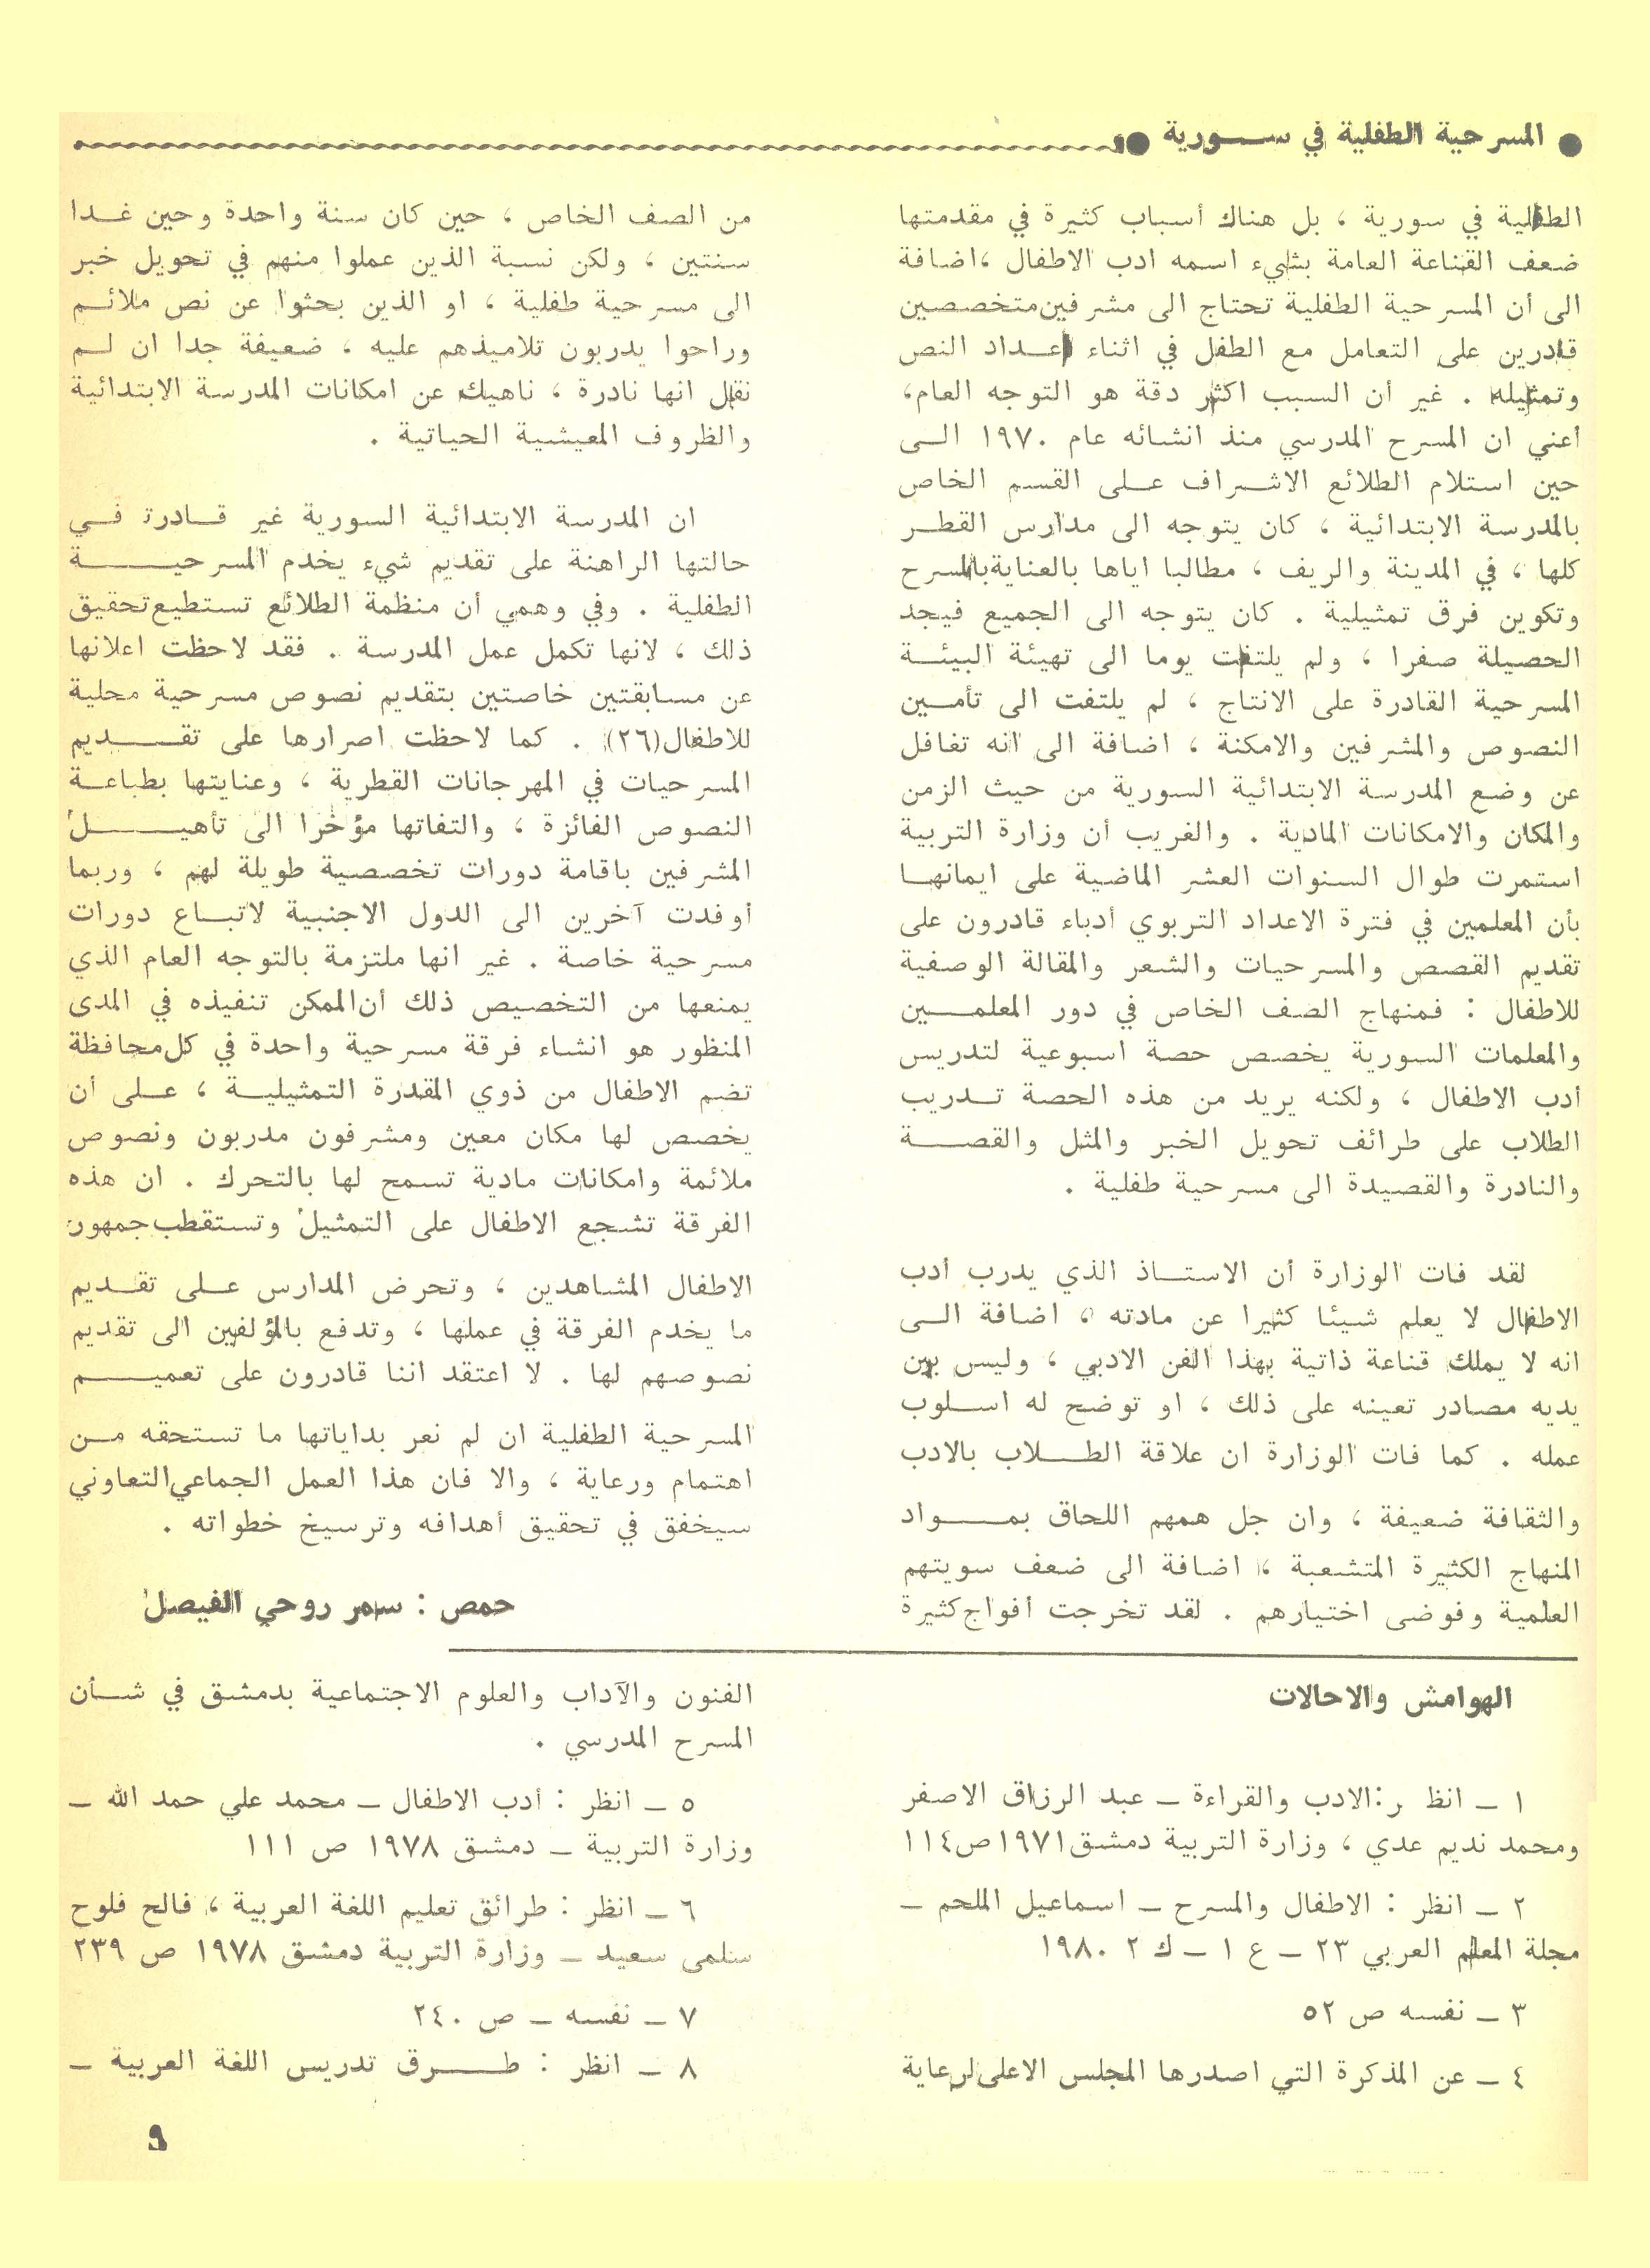 ● المسرحية الطفلية في ســورية ●
الطفلية في سورية ، بل هناك أسباب كثيرة في مقدمتها
ضعف القناعة العامة بشيء اسمه ادب الاطفال ،اضافة
الى أن المسرحية الطفلية تحتاج الى مشرفين متخصصين
قادرين على التعامل مع الطفل في اثناء اعــداد النص
وتمثيله . غير أن السبب اكثر دقة هو التوجه العام،
أعني ان المسرح المدرسي منذ انشائه عام ١٩٧٠ الــى
حين استلام الطلائع الاشــراف علــى القسم الخاص
بالمدرسة الابتدائية ، كان يتوجه الى مدارس القطــر
كلها ، في المدينة والريف ، مطالبا اياها بالعناية بالمسرح
وتكوين فرق تمثيلية . كان يتوجه الى الجميع فيجد
الحصيلة صفرا ، ولم يلتفت يوما الى تهيئة البيئــة
المسرحية القادرة على الانتاج ، لم يلتفت الى تأمــين
النصوص والمشرفين والامكنة ، اضافة الى انه تغافل
عن وضع المدرسة الابتدائية السورية من حيث الزمن
والمكان والامكانات المادية . والغريب أن وزارة التربية
استمرت طوال السنوات العشر الماضية على ايمانهــا
بأن المعلمين في فترة الاعداد التربوي أدباء قادرون على
تقديم القصص والمسرحيات والشعر والمقالة الوصفية
للاطفال : فمنهاج الصف الخاص في دور المعلمــين
والمعلمات السورية يخصص حصة اسبوعية لتدريس
أدب الاطفال ، ولكنه يريد من هذه الحصة تــدريب
الطلاب على طرائف تحويل الخبر والمثل والقصــة
والنادرة والقصيدة الى مسرحية طفلية .
لقد فات الوزارة أن الاستــاذ الذي يدرب أدب
الاطفال لا يعلم شيئا كثيرا عن مادته ، اضافة الــى
انه لا يملك قناعة ذاتية بهذا الفن الادبي ، وليس بين
يديه مصادر تعينه على ذلك ، او توضح له اســلوب
عمله . كما فات الوزارة ان علاقة الطــلاب بالادب
والثقافة ضعيفة ، وان جل همهم اللحاق بمــواد
المنهاج الكثيرة المتشعبة ، اضافة الى ضعف سويتهم
العلمية وفوضى اختيارهم . لقد تخرجت أفواج كثيرة
من الصف الخاص ، حين كان سنة واحدة وحين غــدا
سنتين ، ولكن نسبة الذين عملوا منهم في تحويل خبر
الى مسرحية طفلية ، او الذين بحثوا عن نص ملائــم
وراحوا يدربون تلاميذهم عليه ، ضعيفة جدا ان لــم
نقل انها نادرة ، ناهيك عن امكانات المدرسة الابتدائية
والظروف المعيشية الحياتية .
ان المدرسة الابتدائية السورية غير قــادرة فــي
حالتها الراهنة على تقديم شيء يخدم المسرحيــة
الطفلية . وفي وهمي أن منظمة الطلائع تستطيع تحقيق
ذلك ، لانها تكمل عمل المدرسة . فقد لاحظت اعلانها
عن مسابقتين خاصتين بتقديم نصوص مسرحية محلية
للاطفال(٢٦) . كما لاحظت اصرارها على تقــديم
المسرحيات في المهرجانات القطرية ، وعنايتها بطباعــة
النصوص الفائزة ، والتفاتها مؤخرا الى تأهيــل
المشرفين باقامة دورات تخصصية طويلة لهم ، وربما
أوفدت آخرين الى الدول الاجنبية لاتبــاع دورات
مسرحية خاصة . غير انها ملتزمة بالتوجه العام الذي
يمنعها من التخصيص ذلك أن الممكن تنفيذه في المدى
المنظور هو انشاء فرقة مسرحية واحدة في كل محافظة
تضم الاطفال من ذوي المقدرة التمثيليــة ، علــى أن
يخصص لها مكان معين ومشرفون مدربون ونصوص
ملائمة وامكانات مادية تسمح لها بالتحرك . ان هذه
الفرقة تشجع الاطفال على التمثيل وتستقطب جمهور
الاطفال المشاهدين ، وتحرض المدارس علــى تقــديم
ما يخدم الفرقة في عملها ، وتدفع بالمؤلفين الى تقديم
نصوصهم لها . لا اعتقد اننا قادرون على تعميــم
المسرحية الطفلية ان لم نعر بداياتها ما تستحقه مــن
اهتمام ورعاية ، والا فان هذا العمل الجماعي التعاوني
سيخفق في تحقيق أهدافه وترسيخ خطواته .
حمص : سمر روحي الفيصل
الهوامش والاحالات
١ ــ انظر :الادب والقراءة ــ عبد الرزاق الاصفر
ومحمد نديم عدي ، وزارة التربية دمشق ١٩٧١ ص ١١٤
٢ ــ انظر : الاطفال والمسرح ــ اسماعيل الملحم ــ
مجلة المعلم العربي ٢٣ ــ ع ١ ــ ك ٢ ١٩٨٠
٣ ــ نفسه ص ٥٢
٤ ــ عن المذكرة التي اصدرها المجلس الاعلى لرعاية
الفنون والآداب والعلوم الاجتماعية بدمشق في شــأن
المسرح المدرسي .
٥ ــ انظر : أدب الاطفال ــ محمد علي حمد الله ــ
وزارة التربية ــ دمشق ١٩٧٨ ص ١١١
٦ ــ انظر : طرائق تعليم اللغة العربية ، فالح فلوح
سلمى سعيد ــ وزارة التربية دمشق ١٩٧٨ ص ٢٣٩
٧ ــ نفسه ــ ص ٢٤٠
٨ ــ انظر : طــرق تدريس اللغة العربية ــ
٩